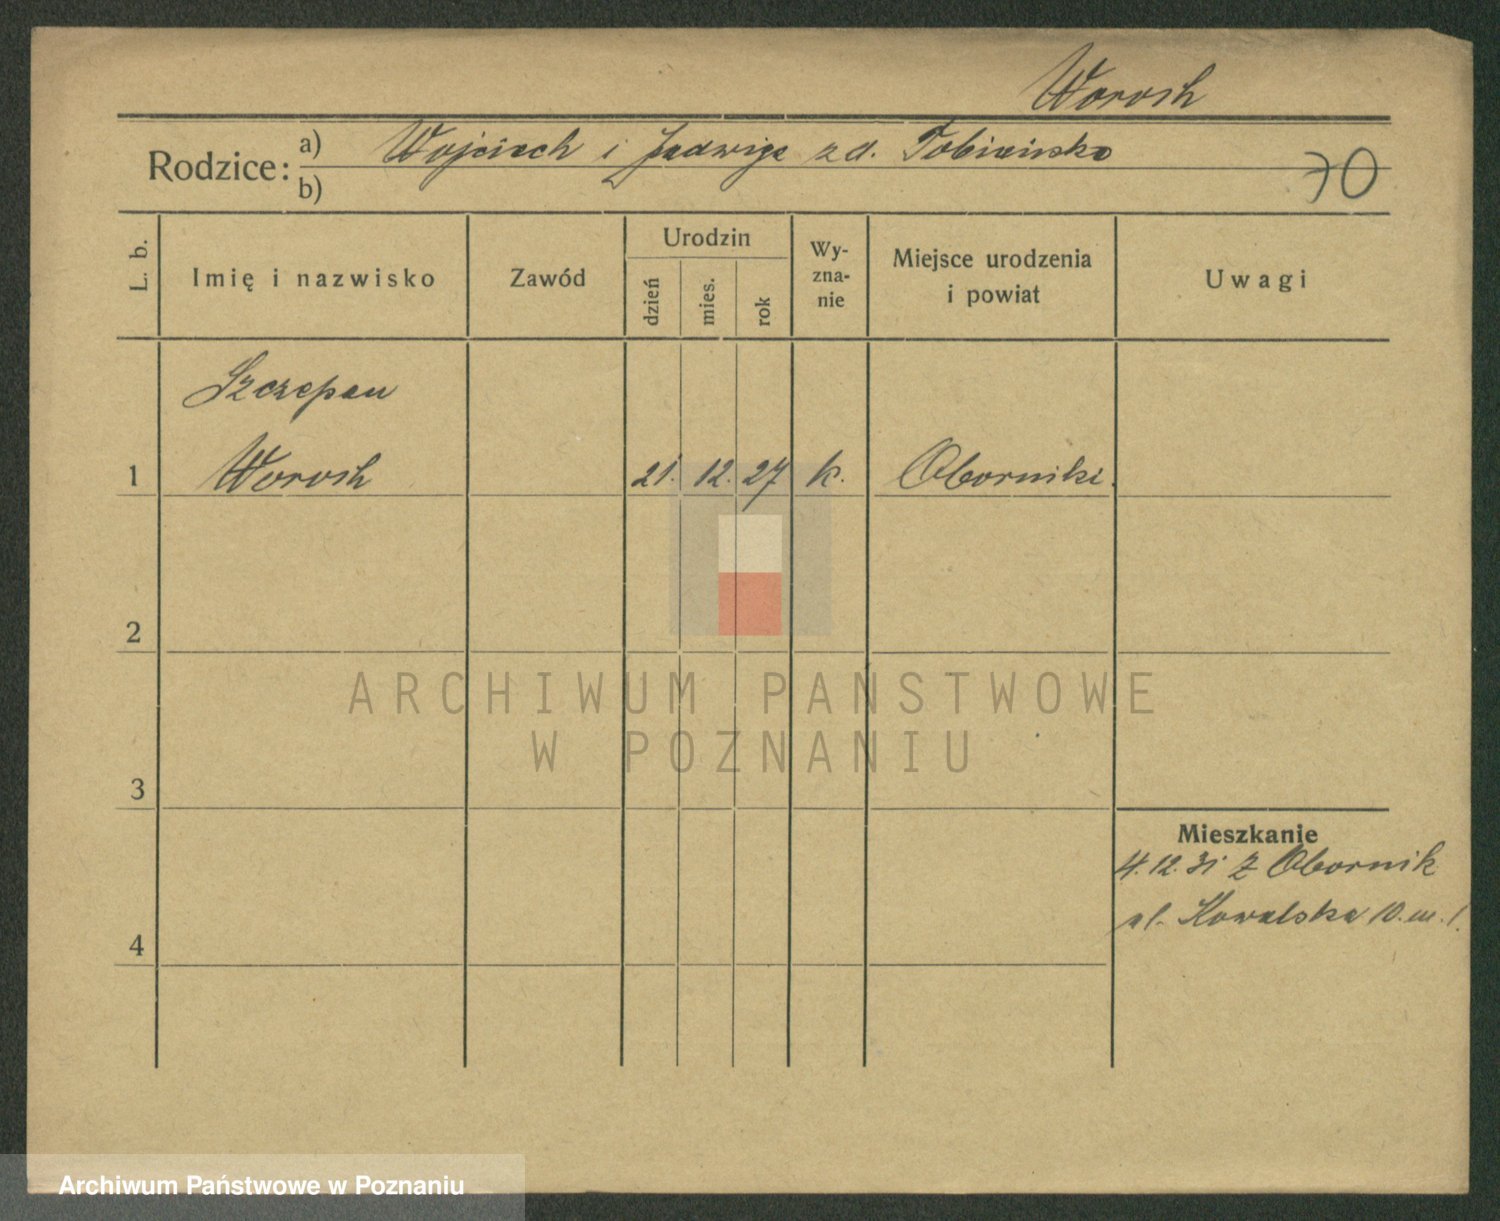 Woroch
Rodzice: a) Wojciech i Jadwiga z d. Tobieńska
b)
70
L. b.
Imię i nazwisko
Zawód
Urodzin
dzień
mies.
rok
Wy-
zna-
nie
Miejsce urodzenia
i powiat
Uwagi
Szczepan
1 Woroch 21. 12. 27 k. Oborniki.
2
ARCHIWUM PAŃSTWOWE
W POZNANIU
3
Mieszkanie
4.12.31 z Obornik
ul. Kowalska 10. m. 1.
4
Archiwum Państwowe w Poznaniu